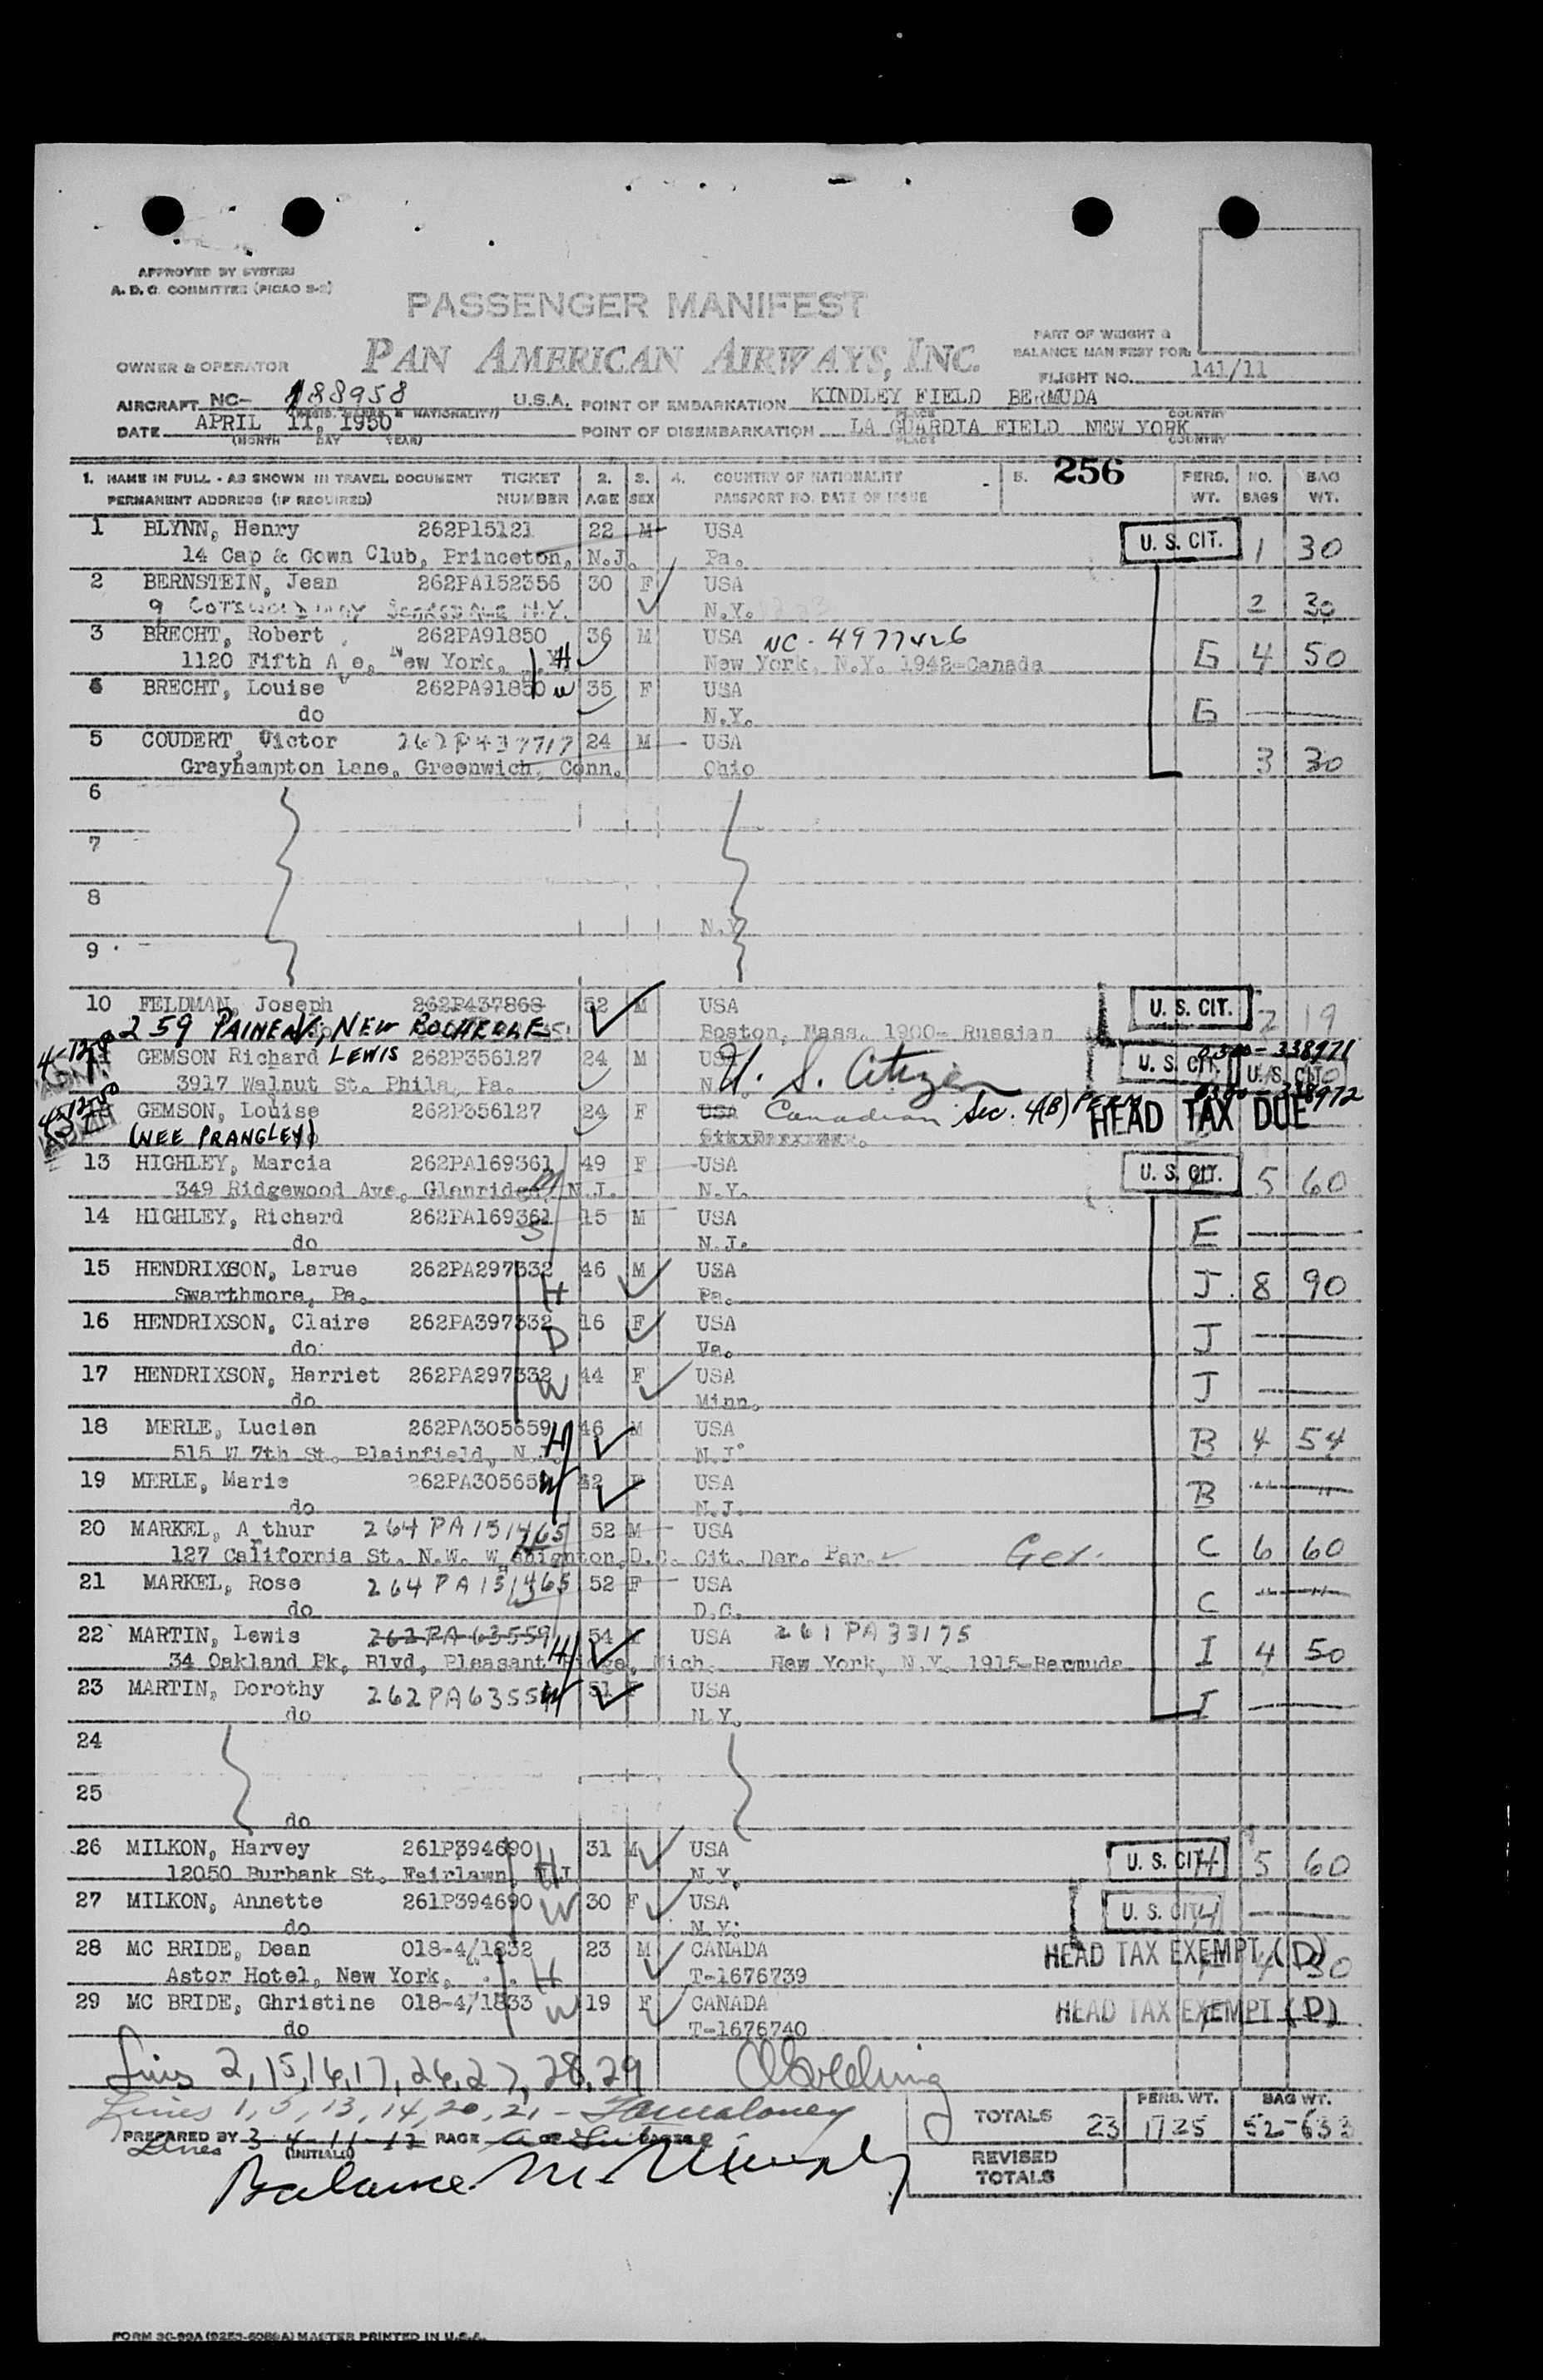 APPROVED BY SYSTEM
A. D. C. COMMITTEE (PICAO S-2)
PASSENGER MANIFEST
PAN AMERICAN AIRWAYS, INC.
PART OF WEIGHT &
BALANCE MANIFEST FOR:
OWNER & OPERATOR
FLIGHT NO. 141/11
AIRCRAFT NC- 188958 U.S.A. POINT OF EMBARKATION KINDLEY FIELD BERMUDA
(REGIS. MARKS & NATIONALITY) PLACE COUNTRY
DATE APRIL 11, 1950 POINT OF DISEMBARKATION LA GUARDIA FIELD NEW YORK
(MONTH DAY YEAR) PLACE COUNTRY
1. NAME IN FULL - AS SHOWN IN TRAVEL DOCUMENT TICKET 2. 3. 4. COUNTRY OF NATIONALITY 5. 256 PERS. NO. BAG
PERMANENT ADDRESS (IF REQUIRED) NUMBER AGE SEX PASSPORT NO. DATE OF ISSUE WT. BAGS WT.
1 BLYNN, Henry 262P15121 22 M USA U. S. CIT. 1 30
14 Cap & Gown Club, Princeton, N.J. Pa.
2 BERNSTEIN, Jean 262PA152356 30 F USA 2 30
9 COTSWOLD WAY SCARSDALE N.Y. N.Y.
3 BRECHT, Robert 262PA91850 36 M USA NC-4977426
1120 Fifth A e, New York, N.Y. H New York, N.Y. 1942-Canada G 4 50
4 BRECHT, Louise 262PA91850 W 35 F USA
do N.Y. G
5 COUDERT, Victor 262P437717 24 M USA
Grayhampton Lane, Greenwich, Conn. Ohio 3 30
6
7
8
N.Y.
9
10 FELDMAN, Joseph 262P437868 52 M USA U. S. CIT. 2 19
259 PAINE AV, NEW ROCHELLE Boston, Mass. 1900- Russian
4-12-50 GEMSON Richard LEWIS 262P356127 24 M USA U. S. Citizen U. S. CIT. 0300-338971
3917 Walnut St. Phila, Pa. U. S. CIT.
4-12-50 GEMSON, Louise 262P356127 24 F USA Canadian Sec. 4(B) PERM HEAD TAX DUE 0300-338972
(NEE PRANGLEY)
13 HIGHLEY, Marcia 262PA169361 49 F USA U. S. CIT. 5 60
349 Ridgewood Ave, Glenridge, N.J. M N.Y.
14 HIGHLEY, Richard 262PA169361 15 M USA E
do S N.J.
15 HENDRIXSON, Larue 262PA297332 46 M USA
Swarthmore, Pa. H Pa. J 8 90
16 HENDRIXSON, Claire 262PA397332 16 F USA
do D Va. J
17 HENDRIXSON, Harriet 262PA297332 W 44 F USA
do Minn. J
18 MERLE, Lucien 262PA305659 46 M USA
515 W 7th St. Plainfield, N.J. H N.J. B 4 54
19 MERLE, Marie 262PA305659 W 42 F USA
do N.J. B
20 MARKEL, A thur 264PA131465 52 M USA
127 California St. N.W. Washington, D.C. Cit. Der. Par. Ger. C 6 60
21 MARKEL, Rose 264PA131465 52 F USA
do D.C. C
22 MARTIN, Lewis 262PA63559 54 USA 261PA33175
34 Oakland Pk, Blvd, Pleasant Ridge, Mich. H New York, N.Y. 1915-Bermuda I 4 50
23 MARTIN, Dorothy 262PA63559 W 51 USA
do N.Y. I
24
25
do
26 MILKON, Harvey 261P394690 31 M USA U. S. CIT. H 5 60
12050 Burbank St. Fairlawn, N.J. H N.Y.
27 MILKON, Annette 261P394690 W 30 F USA U. S. CIT. H
do N.Y.
28 MC BRIDE, Dean 018-4/1832 23 M CANADA HEAD TAX EXEMPT (D)
Astor Hotel, New York, H T-1676739 4 30
29 MC BRIDE, Ghristine 018-4/1833 W 19 F CANADA HEAD TAX EXEMPT (D)
do T-1676740
Lines 2, 15, 16, 17, 26, 27, 28, 29
Lines 1, 5, 13, 14, 20, 21 -
PREPARED BY PAGE
(INITIALS)
Lines 3 4-11-12
Balance
TOTALS 23 PERS. WT. 1725 BAG WT. 52-633
REVISED
TOTALS